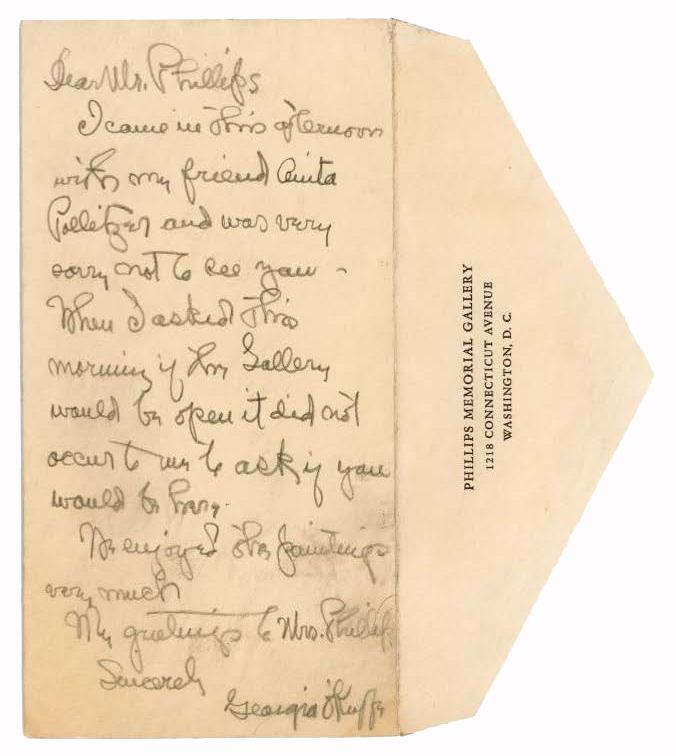 Dear Mr. Phillips
I came in this afternoon
with my friend Anita
Pollitzer and was very
sorry not to see you -
When I asked this
morning if the Gallery
would be open it did not
occur to me to ask if you
would be here.
We enjoyed the paintings
very much
My greetings to Mrs. Phillips
Sincerely
Georgia O'Keeffe
PHILLIPS MEMORIAL GALLERY
1218 CONNECTICUT AVENUE
WASHINGTON, D. C.